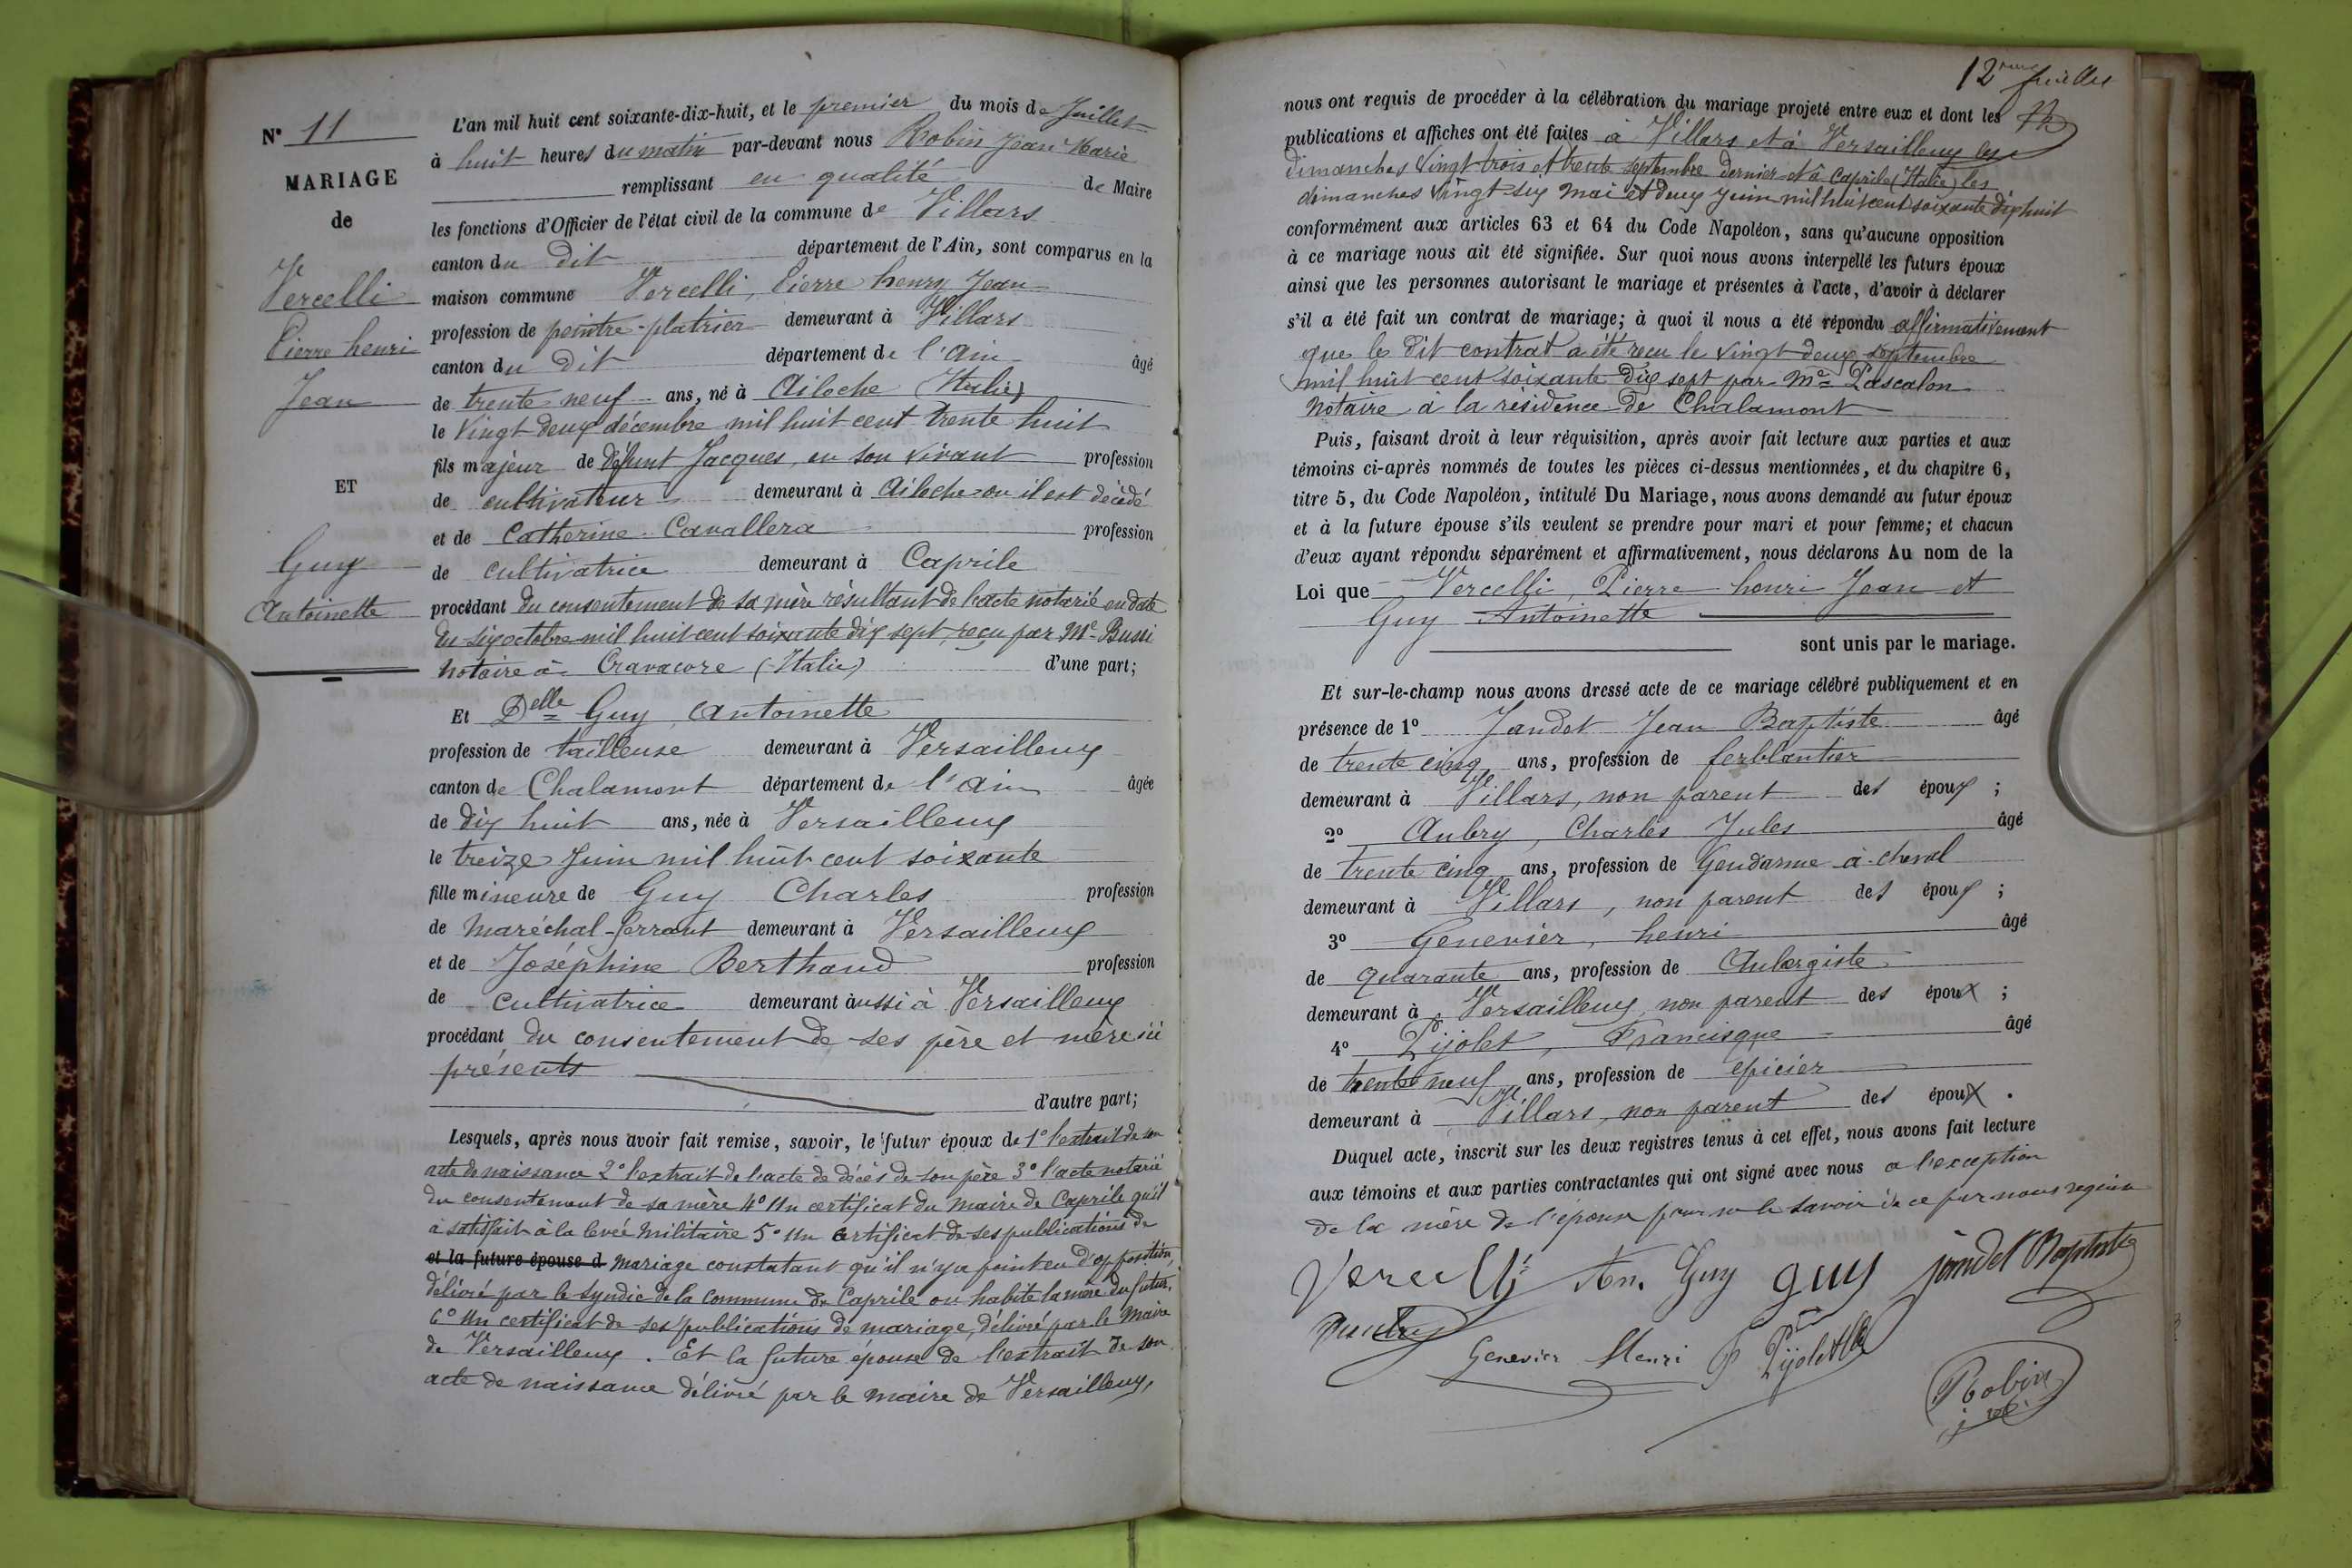 N° 11
MARIAGE
de
Vercelli
Pierre henri
Jean
ET
Guy
Antoinette
L'an mil huit cent soixante-dix-huit, et le premier du mois de Juillet
à huit heures du matin par-devant nous Robin Jean Marie
remplissant en qualité de Maire
les fonctions d'Officier de l'état civil de la commune de Villars
canton du dit département de l'Ain, sont comparus en la
maison commune Vercelli, Pierre henry Jean
profession de peintre-platrier demeurant à Villars
canton du dit département de l'Ain âgé
de trente neuf ans, né à Ailoche (Italie)
le vingt deux décembre mil huit cent trente huit
fils majeur de défunt Jacques, en son vivant profession
de cultivateur demeurant à Ailoche ou il est décédé
et de Catherine Cavallera profession
de cultivatrice demeurant à Caprile
procédant du consentement de sa mère résultant de l'acte notarié en date
du six octobre mil huit cent soixante dix sept, reçu par Me Bussi
notaire à Cravacore (Italie) d'une part;
Et Delle Guy Antoinette
profession de tailleuse demeurant à Versailleux
canton de Chalamont département de l'Ain âgée
de dix huit ans, née à Versailleux
le treize Juin mil huit cent soixante
fille mineure de Guy Charles profession
de Maréchal-ferrant demeurant à Versailleux
et de Joséphine Berthaud profession
de cultivatrice demeurant aussi à Versailleux
procédant du consentement de ses père et mère ici
présents
d'autre part;
Lesquels, après nous avoir fait remise, savoir, le futur époux de 1° l'extrait de son
acte de naissance 2° l'extrait de l'acte de décès de son père 3° l'acte notarié
du consentement de sa mère 4° Un certificat du Maire de Caprile qu'il
à satisfait à la levée militaire 5° Un certificat de ses publications de
et la future épouse d mariage constatant qu'il n'y a point eu d'opposition,
délivré par le syndic de la commune de Caprile ou habite la mère du futur,
6° Un certificat de ses publications de mariage, délivré par le Maire
de Versailleux. Et la future épouse de l'extrait de son
acte de naissance délivré par le maire de Versailleux,
12me feuillet
nous ont requis de procéder à la célébration du mariage projeté entre eux et dont les
publications et affiches ont été faites à Villars et à Versailleux les
dimanches vingt trois et trente septembre dernier et à Caprile (Italie) les
dimanches vingt six mai et deux juin mil huit cent soixante dix huit
conformément aux articles 63 et 64 du Code Napoléon, sans qu'aucune opposition
à ce mariage nous ait été signifiée. Sur quoi nous avons interpellé les futurs époux
ainsi que les personnes autorisant le mariage et présentes à l'acte, d'avoir à déclarer
s'il a été fait un contrat de mariage; à quoi il nous a été répondu affirmativement
que le dit contrat a été reçu le vingt deux septembre
mil huit cent soixante dix sept par Me Pascalon
Notaire à la résidence de Chalamont
Puis, faisant droit à leur réquisition, après avoir fait lecture aux parties et aux
témoins ci-après nommés de toutes les pièces ci-dessus mentionnées, et du chapitre 6,
titre 5, du Code Napoléon, intitulé Du Mariage, nous avons demandé au futur époux
et à la future épouse s'ils veulent se prendre pour mari et pour femme; et chacun
d'eux ayant répondu séparément et affirmativement, nous déclarons Au nom de la
Loi que Vercelli, Pierre henri Jean et
Guy Antoinette
sont unis par le mariage.
Et sur-le-champ nous avons dressé acte de ce mariage célébré publiquement et en
présence de 1° Jandet Jean Baptiste âgé
de trente cinq ans, profession de ferblantier
demeurant à Villars, non parent des époux ;
2° Aubry, Charles Jules âgé
de trente cinq ans, profession de Gendarme à cheval
demeurant à Villars, non parent des époux ;
3° Genevier, henri âgé
de quarante ans, profession de Aubergiste
demeurant à Versailleux, non parent des époux ;
4° Pijolet, Francisque âgé
de trente neuf ans, profession de épicier
demeurant à Villars, non parent des époux .
Duquel acte, inscrit sur les deux registres tenus à cet effet, nous avons fait lecture
aux témoins et aux parties contractantes qui ont signé avec nous a l'exception
de la mère de l'épouse pour ne le savoir de ce par nous requise
Vercelli An. Guy guy jandet Baptiste
Genevier Henri P Pijolet
Robin